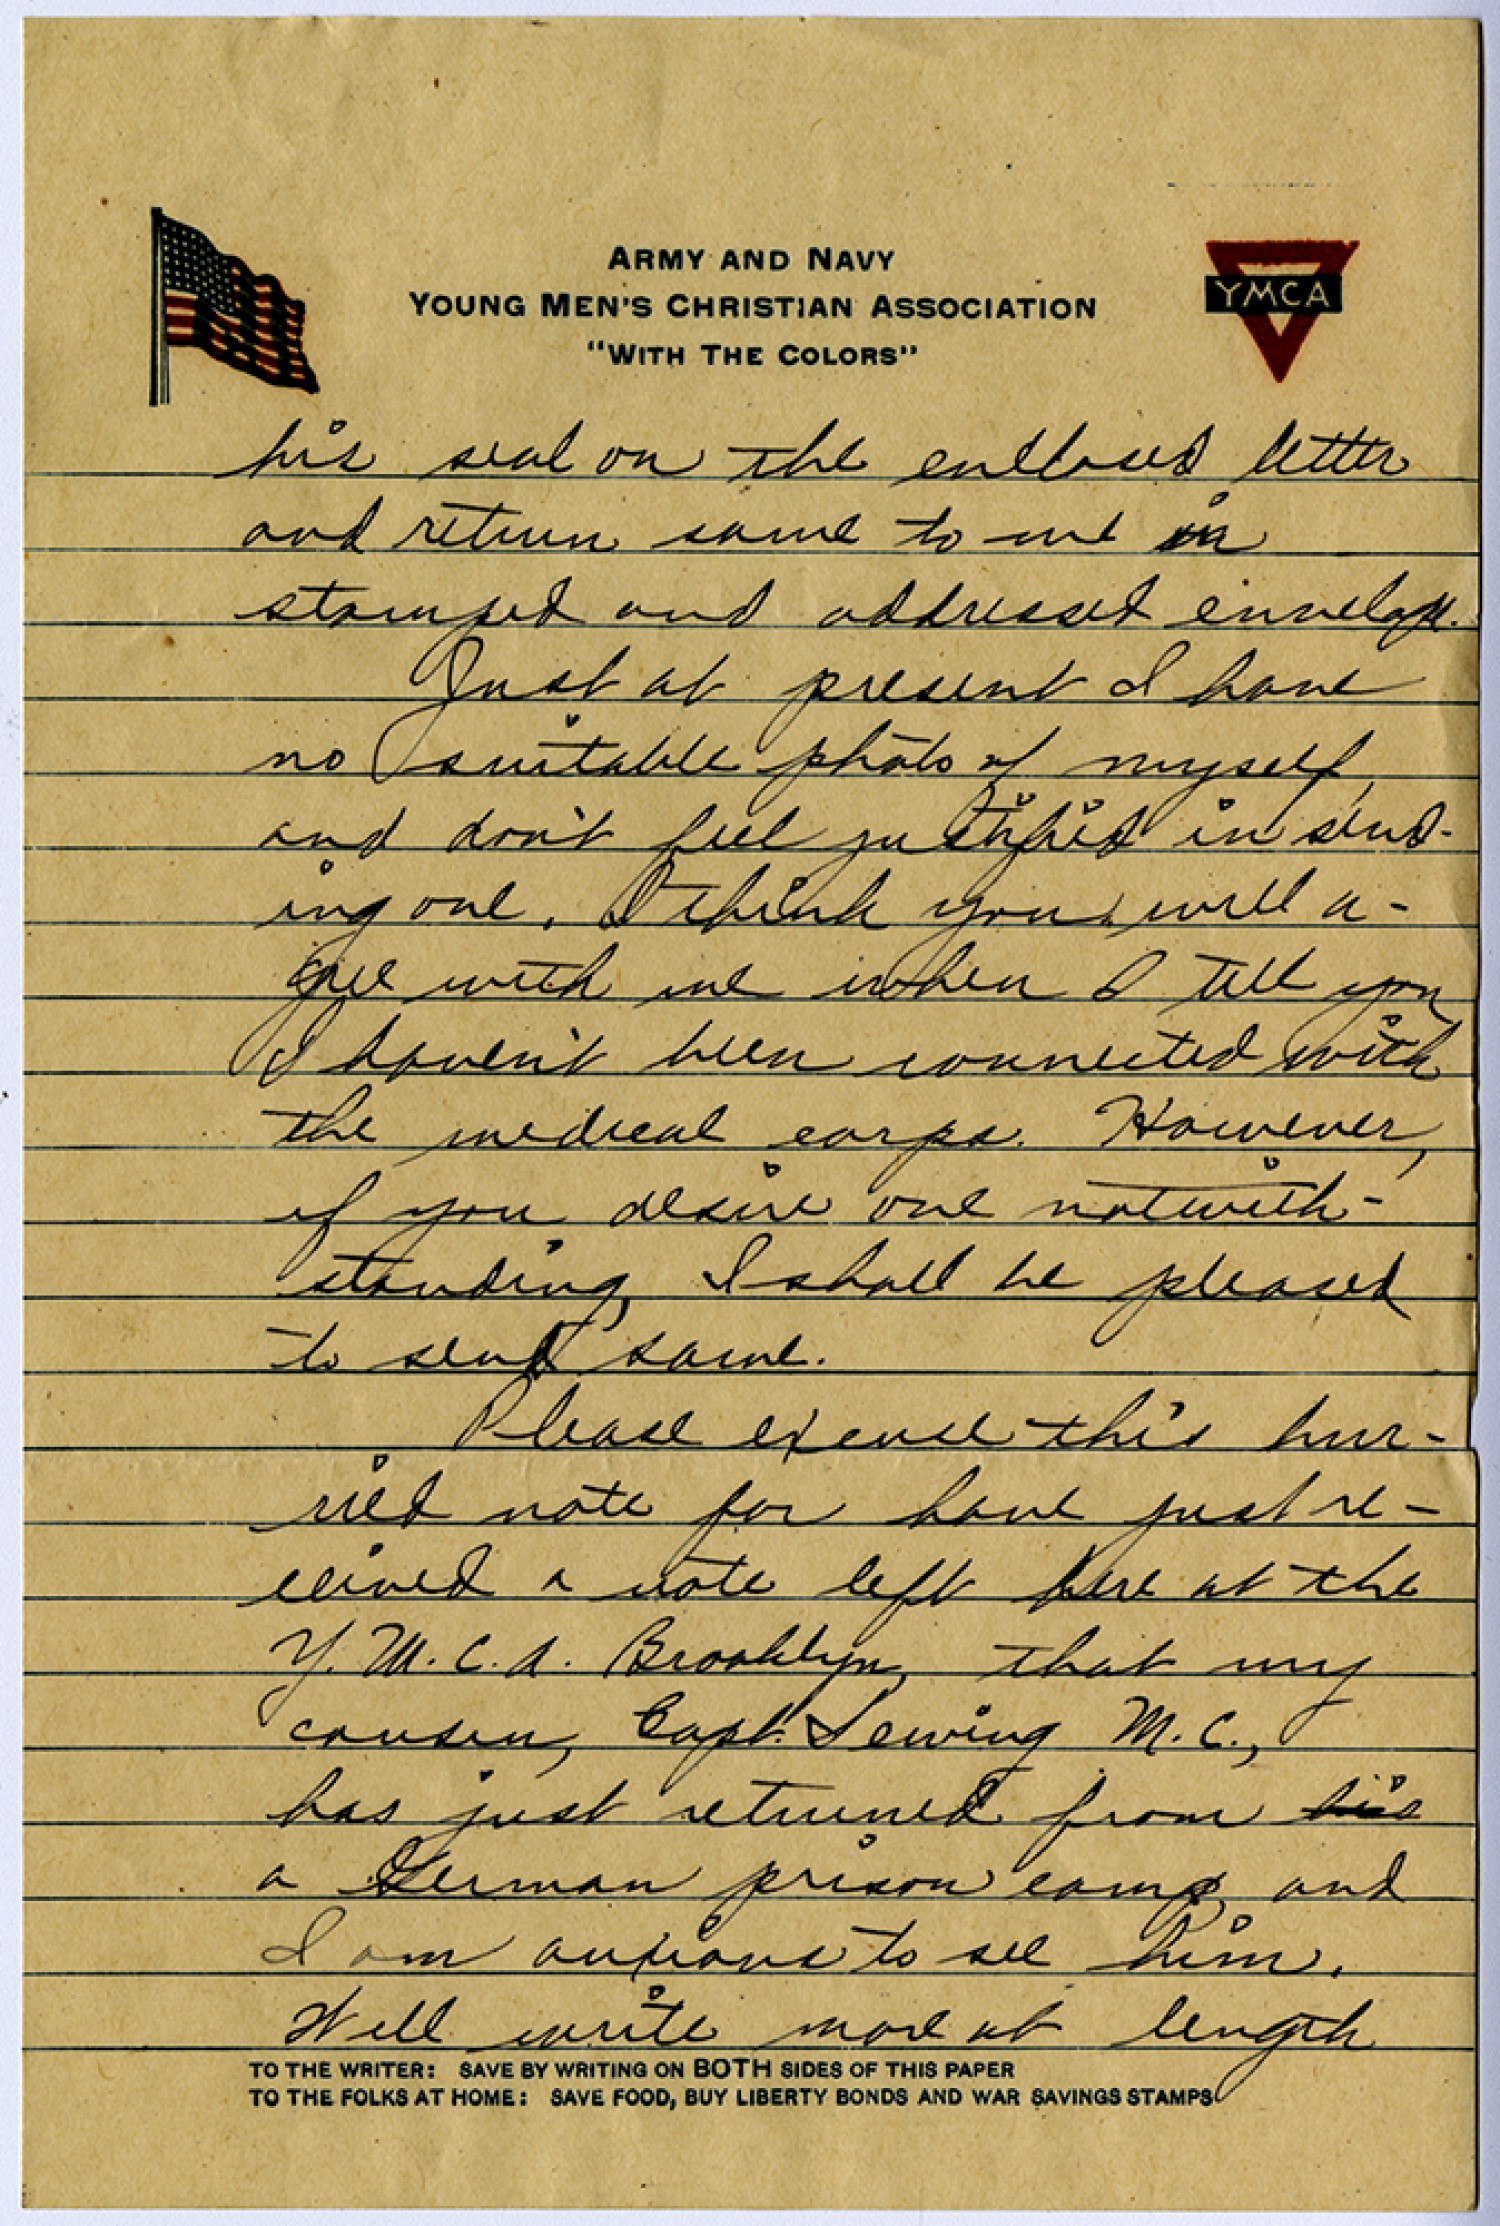 ARMY AND NAVY
YOUNG MEN'S CHRISTIAN ASSOCIATION
"WITH THE COLORS"
YMCA
his seal on the enclosed letter
and return same to me in
stamped and addressed envelope.
Just at present I have
no suitable photo of myself,
and don't feel justified in send-
ing one. I think you will a-
gree with me when I tell you
I haven't been connected with
the medical corps. However,
if you desire one notwith-
standing, I shall be pleased
to send same.
Please excuse this hur-
ried note for have just re-
ceived a note left here at the
Y.M.C.A. Brooklyn, that my
cousin, Capt. M.C.,
has just returned from his
a German prison camp, and
I am anxious to see him.
Will write more at length
TO THE WRITER: SAVE BY WRITING ON BOTH SIDES OF THIS PAPER
TO THE FOLKS AT HOME: SAVE FOOD, BUY LIBERTY BONDS AND WAR SAVINGS STAMPS